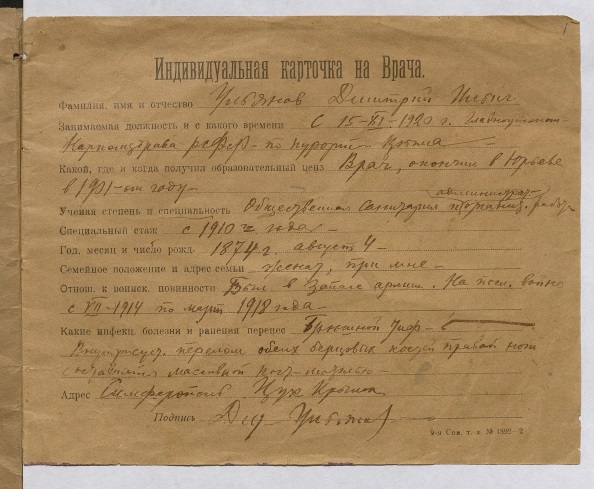 Индивидуальная карточка на Врача.
Фамилия, имя и отчество Ульянов Дмитрий Ильич
Занимаемая должность и с какого времени С 15-XI-1920 г.
Наркомздрава РСФСР по курортам Крыма
Какой, где и когда получил образовательный ценз Врач, окончил в Юрьеве
в 1901-ом году
администрат.
Ученая степень и специальность Общественная Санитария и организ. работ
Специальный стаж с 1910 г. года
Год, месяц и число рожд. 1874 г. август 4
Семейное положение и адрес семьи женат, при мне
Отнош. к воинск. повинности Был в запасе армии. На войне
с VII-1914 по март 1918 года
Какие инфекц. болезни и ранения перенес Брюшной тиф
перелом обеих берцовых костей правой ноги
массивной кост. мозолью
Адрес Симферополь Цук Крыма
Подпись Дм. Ульянов
9-я Сов. т. з. № 1892-2